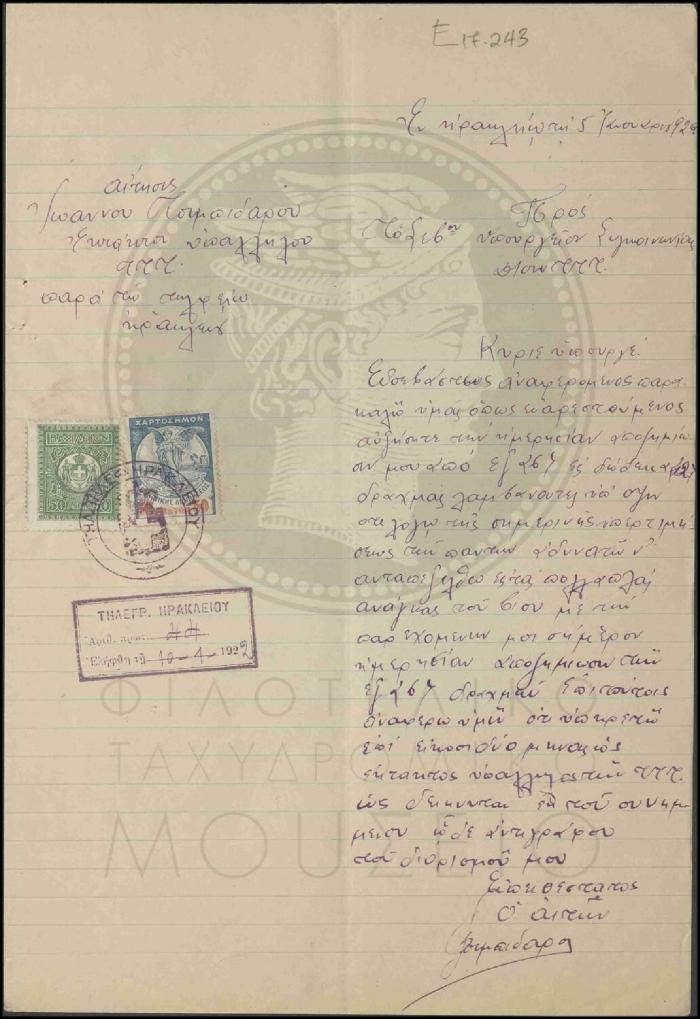 E 17.243
Ἐν Ἡρακλείῳ τῇ 5
αἴτησις
Ἰωάννου
Ἐκτάκτου ὑπαλλήλου
Τ.Τ.Τ.
παρά τῷ
Ἡρακλείου
Πρός
Τό Σεβ ὑπουργεῖον Συγκοινωνίας
Τ.Τ.Τ.
Κύριε ὑπουργέ
Εὐσεβάστως ἀναφερόμενος παρα
καλῶ ὑμᾶς ὅπως εὐαρεστούμενος
αὐξήσητε τήν ἡμερησίαν ἀποζημίω
σιν μου ἀπό ἕξ (6) εἰς δώδεκα (12)
δραχμάς λαμβάνοντες ὑπ ὄψιν
ὅτι λόγῳ τῆς σημερινῆς ὑπερτιμή
σεως τῶν πάντων ἀδυνατῶ ν
ἀνταπεξέλθω εἰς τάς πολλαπλάς
ἀνάγκας τοῦ βίου μέ τήν
παρεχομένην μοι σήμερον
ἡμερησίαν ἀποζημίωσιν τῶν
ἕξ (6) δραχμῶν Ἐπί τούτοις
ἀναφέρω ὑμῖν ὅτι ὑπηρετῶ
ἐπί εἴκοσι δύο μῆνας ὡς
ἔκτακτος ὑπάλληλος τῶν Τ.Τ.Τ.
ὡς δείκνυται ἐκ τοῦ συνημ
μένου ὧδε ἀντιγράφου
τοῦ διορισμοῦ μου
Εὐπειθέστατος
Ὁ αἰτῶν
50
ΧΑΡΤΟΣΗΜΟΝ
50
ΤΗΛΕΓΡ. ΗΡΑΚΛΕΙΟΥ
Ἀριθ. πρωτ. 44
Ἐλήφθη τῇ 10-1-1922
ΦΙΛΟΤΕΛΙΚΟ
ΤΑΧΥΔΡΟΜΙΚΟ
ΜΟΥΣΕΙΟ